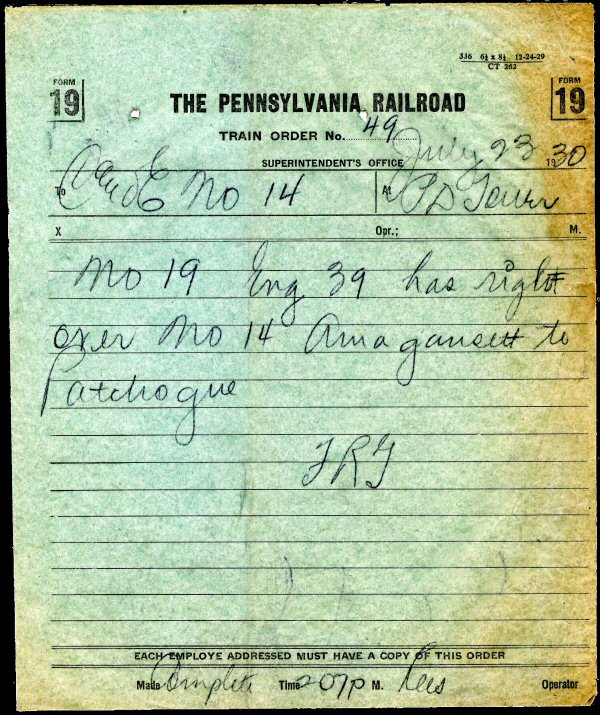 336 6½ x 8½ 12-24-29
CT 262
FORM 19
FORM 19
THE PENNSYLVANIA RAILROAD
TRAIN ORDER No. 49
SUPERINTENDENT'S OFFICE July 23 1930
To C and E No 14 At PD Tower
X Opr.; M.
No 19 Eng 39 has right
over No 14 Amagansett to
Patchogue
EACH EMPLOYE ADDRESSED MUST HAVE A COPY OF THIS ORDER
Made Complete Time 207 P M. Operator